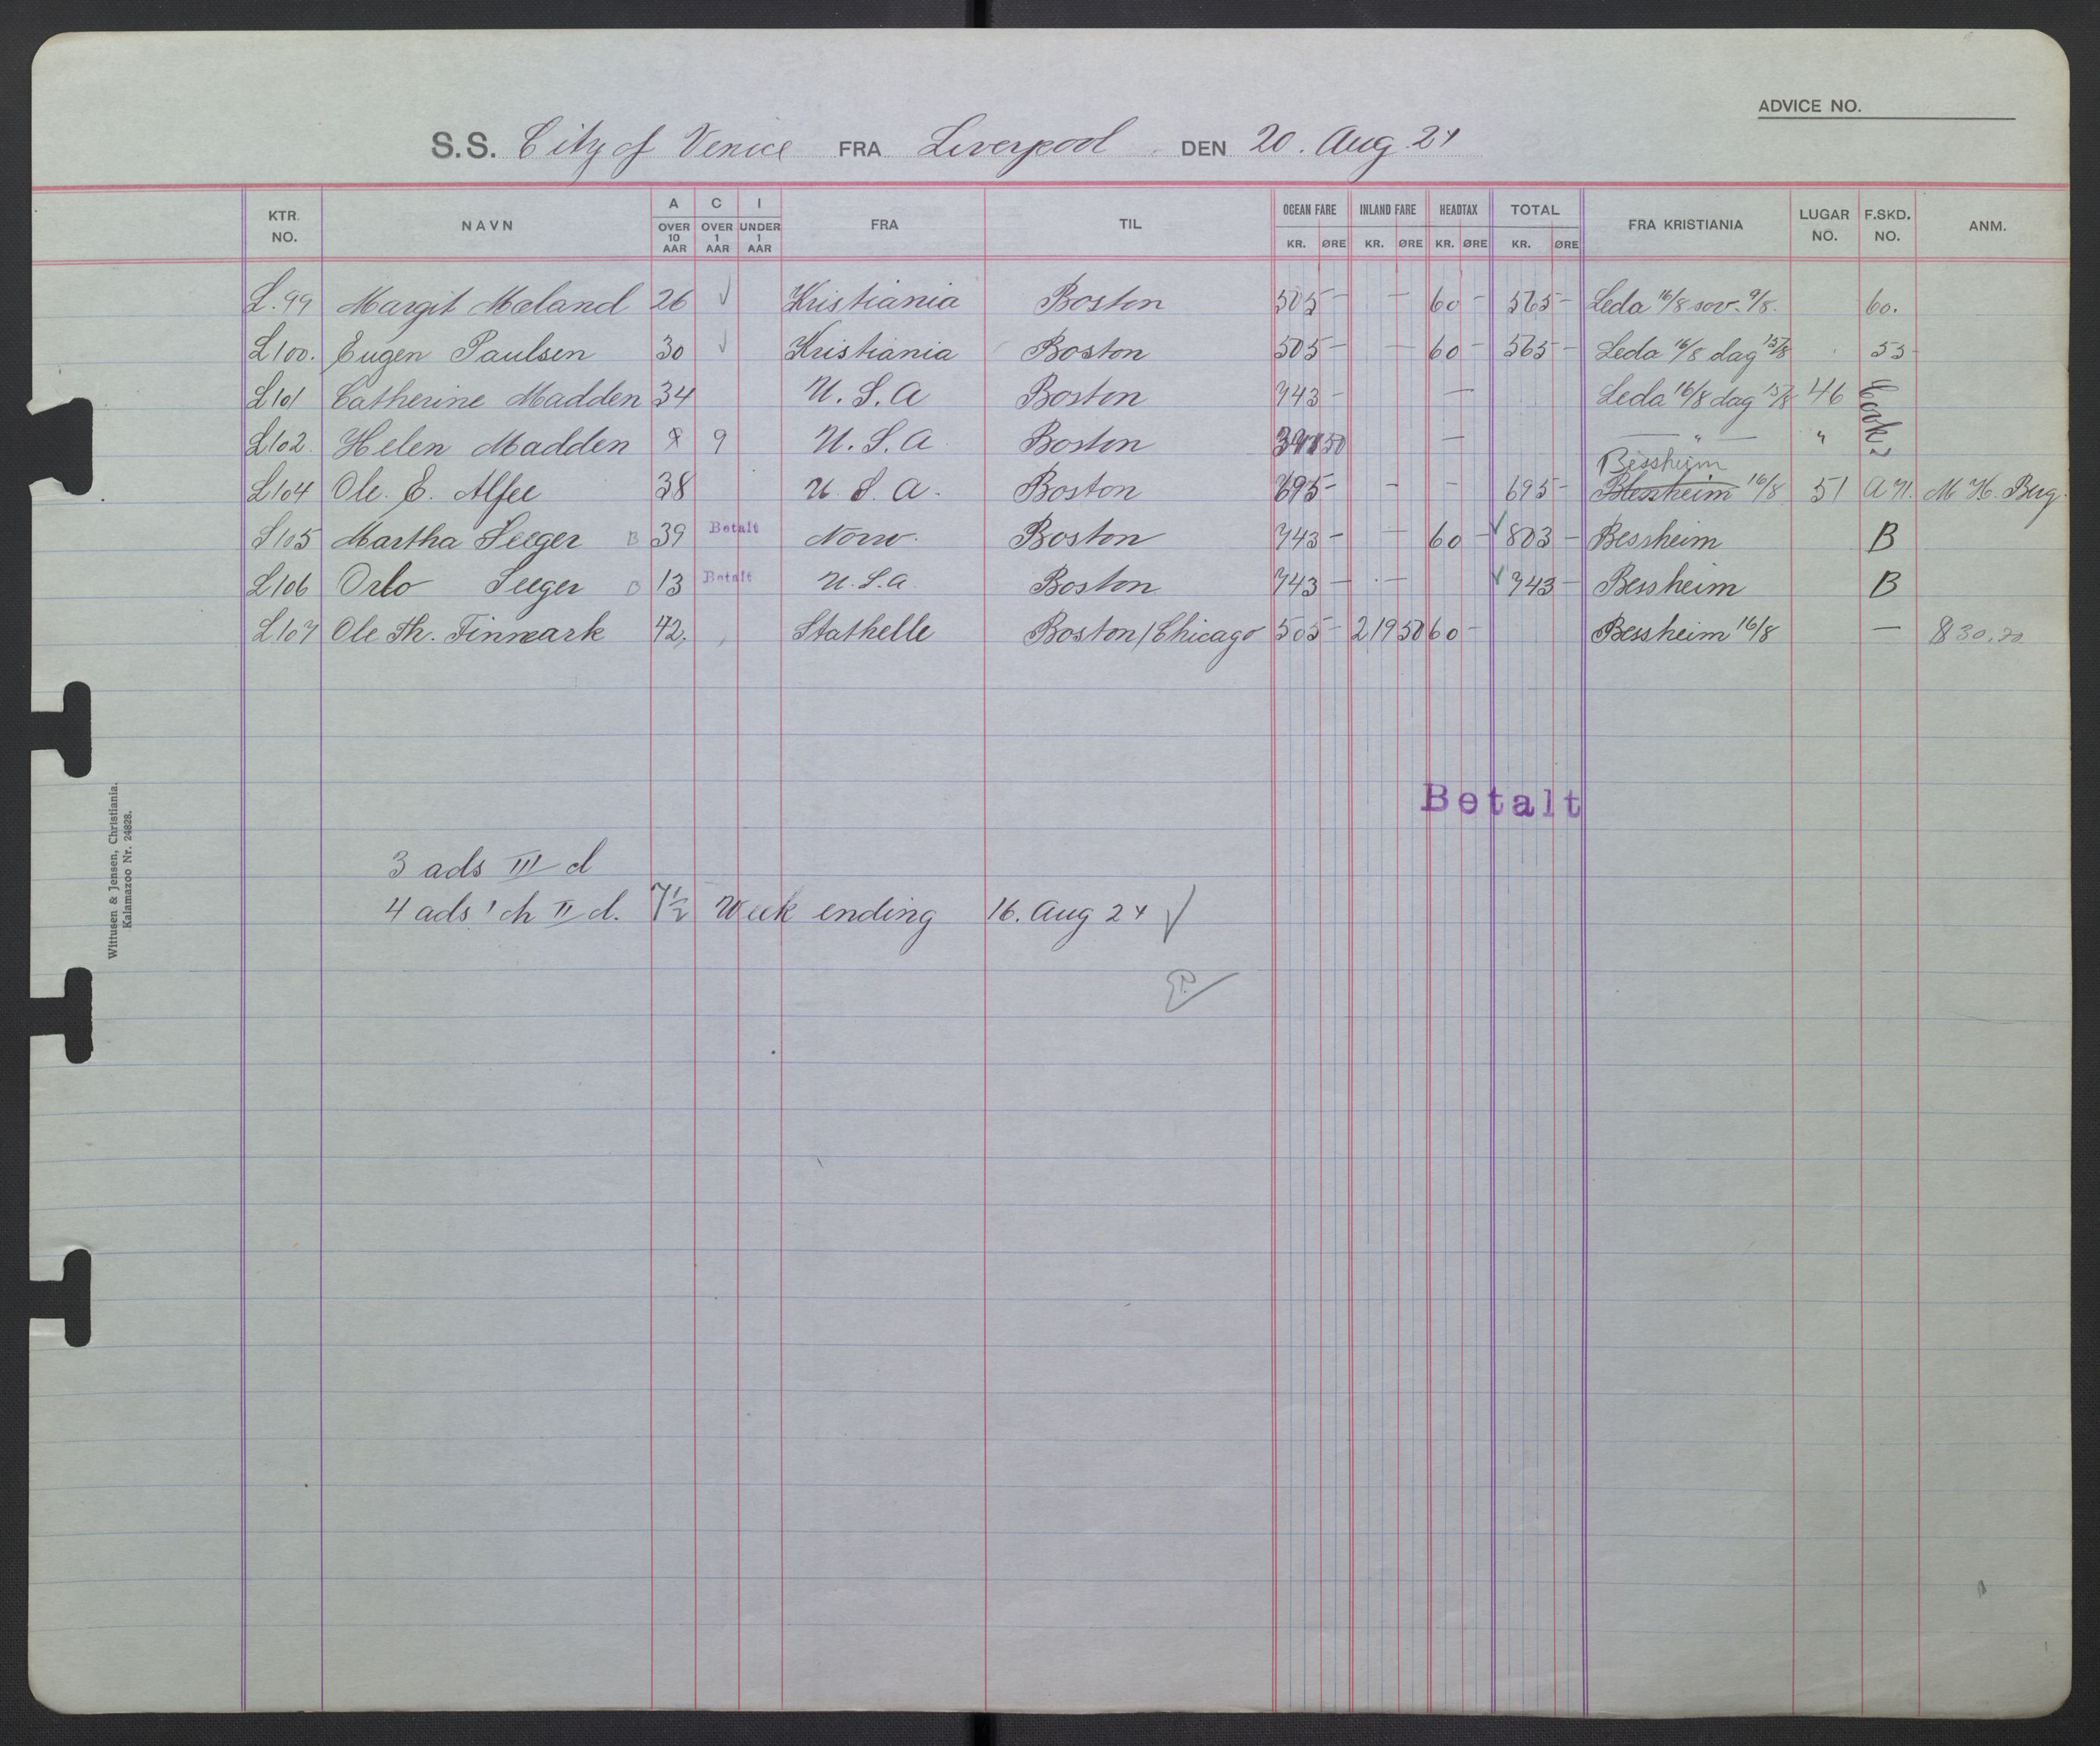 ADVICE NO.
S.S. City of Venice FRA Liverpool DEN 20. Aug. 24
KTR. NO. NAVN A OVER 10 AAR C OVER 1 AAR I UNDER 1 AAR FRA TIL OCEAN FARE KR. ØRE INLAND FARE KR. ØRE HEADTAX KR. ØRE TOTAL KR. ØRE FRA KRISTIANIA LUGAR NO. F.SKD. NO. ANM.
L.99 Margit Mæland 26 √ Kristiania Boston 505 - - 60 - 565 - Leda 16/8 sov. 9/8. 60.
L100. Eugen Paulsen 30 √ Kristiania Boston 505 - - 60 - 565 - Leda 16/8 dag 15/8 53
L101 Catherine Madden 34 U.S.A Boston 743 - - Leda 16/8 dag 15/8 46 Cook
L102. Helen Madden 9 U.S.A. Boston 50 - — " — "
Bessheim
L104 Ole. E. Alfee 38 U.S.A. Boston 695 - - - 695 - Blenheim 16/8 51 M. H. Berg.
L105 Martha Seeger B 39 Betalt Norw. Boston 743 - - 60 - √ 803 - Bessheim B
L106 Orlo Seeger B 13 Betalt U.S.A. Boston 743 - - √ 743 - Bessheim B
L107 Ole Th. Finmark 42. Stathelle Boston/Chicago 505 - 219 50 60 - Bessheim 16/8 - $30,20
Betalt
3 ads III d
4 ads 1 ch II d. 7½ Week ending 16. Aug 24 √
Wittusen & Jensen, Christiania.
Kalamazoo Nr. 24828.